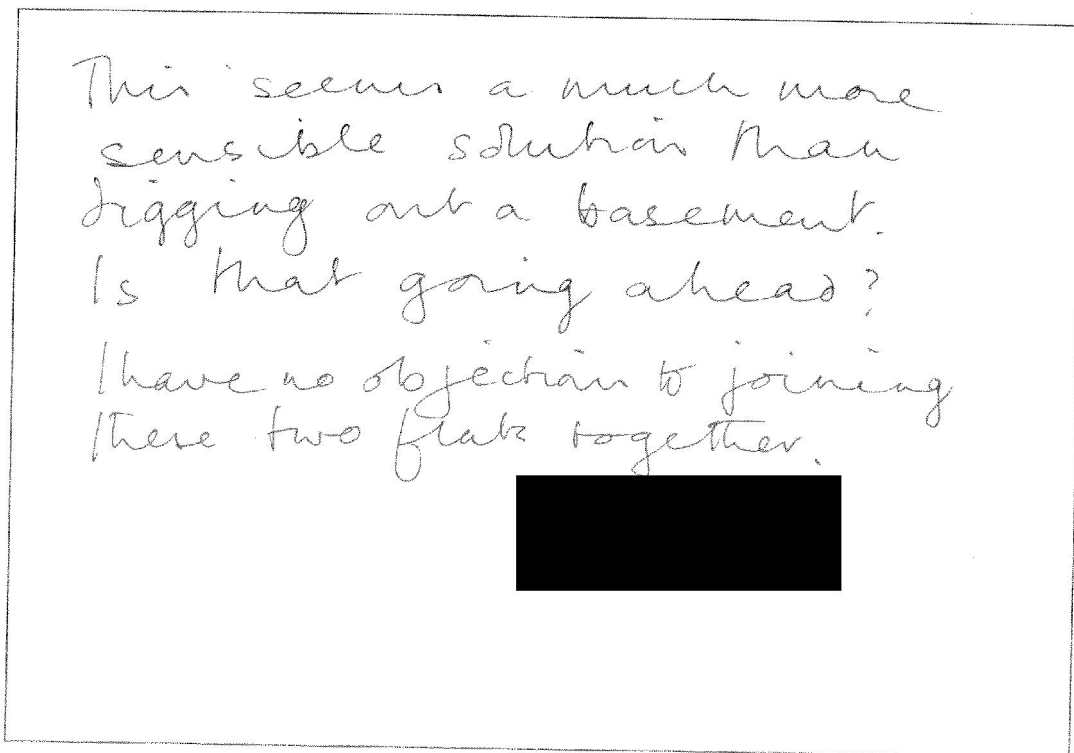 This seems a much more
sensible solution than
digging out a basement.
Is that going ahead?
I have no objection to joining
these two flats together.